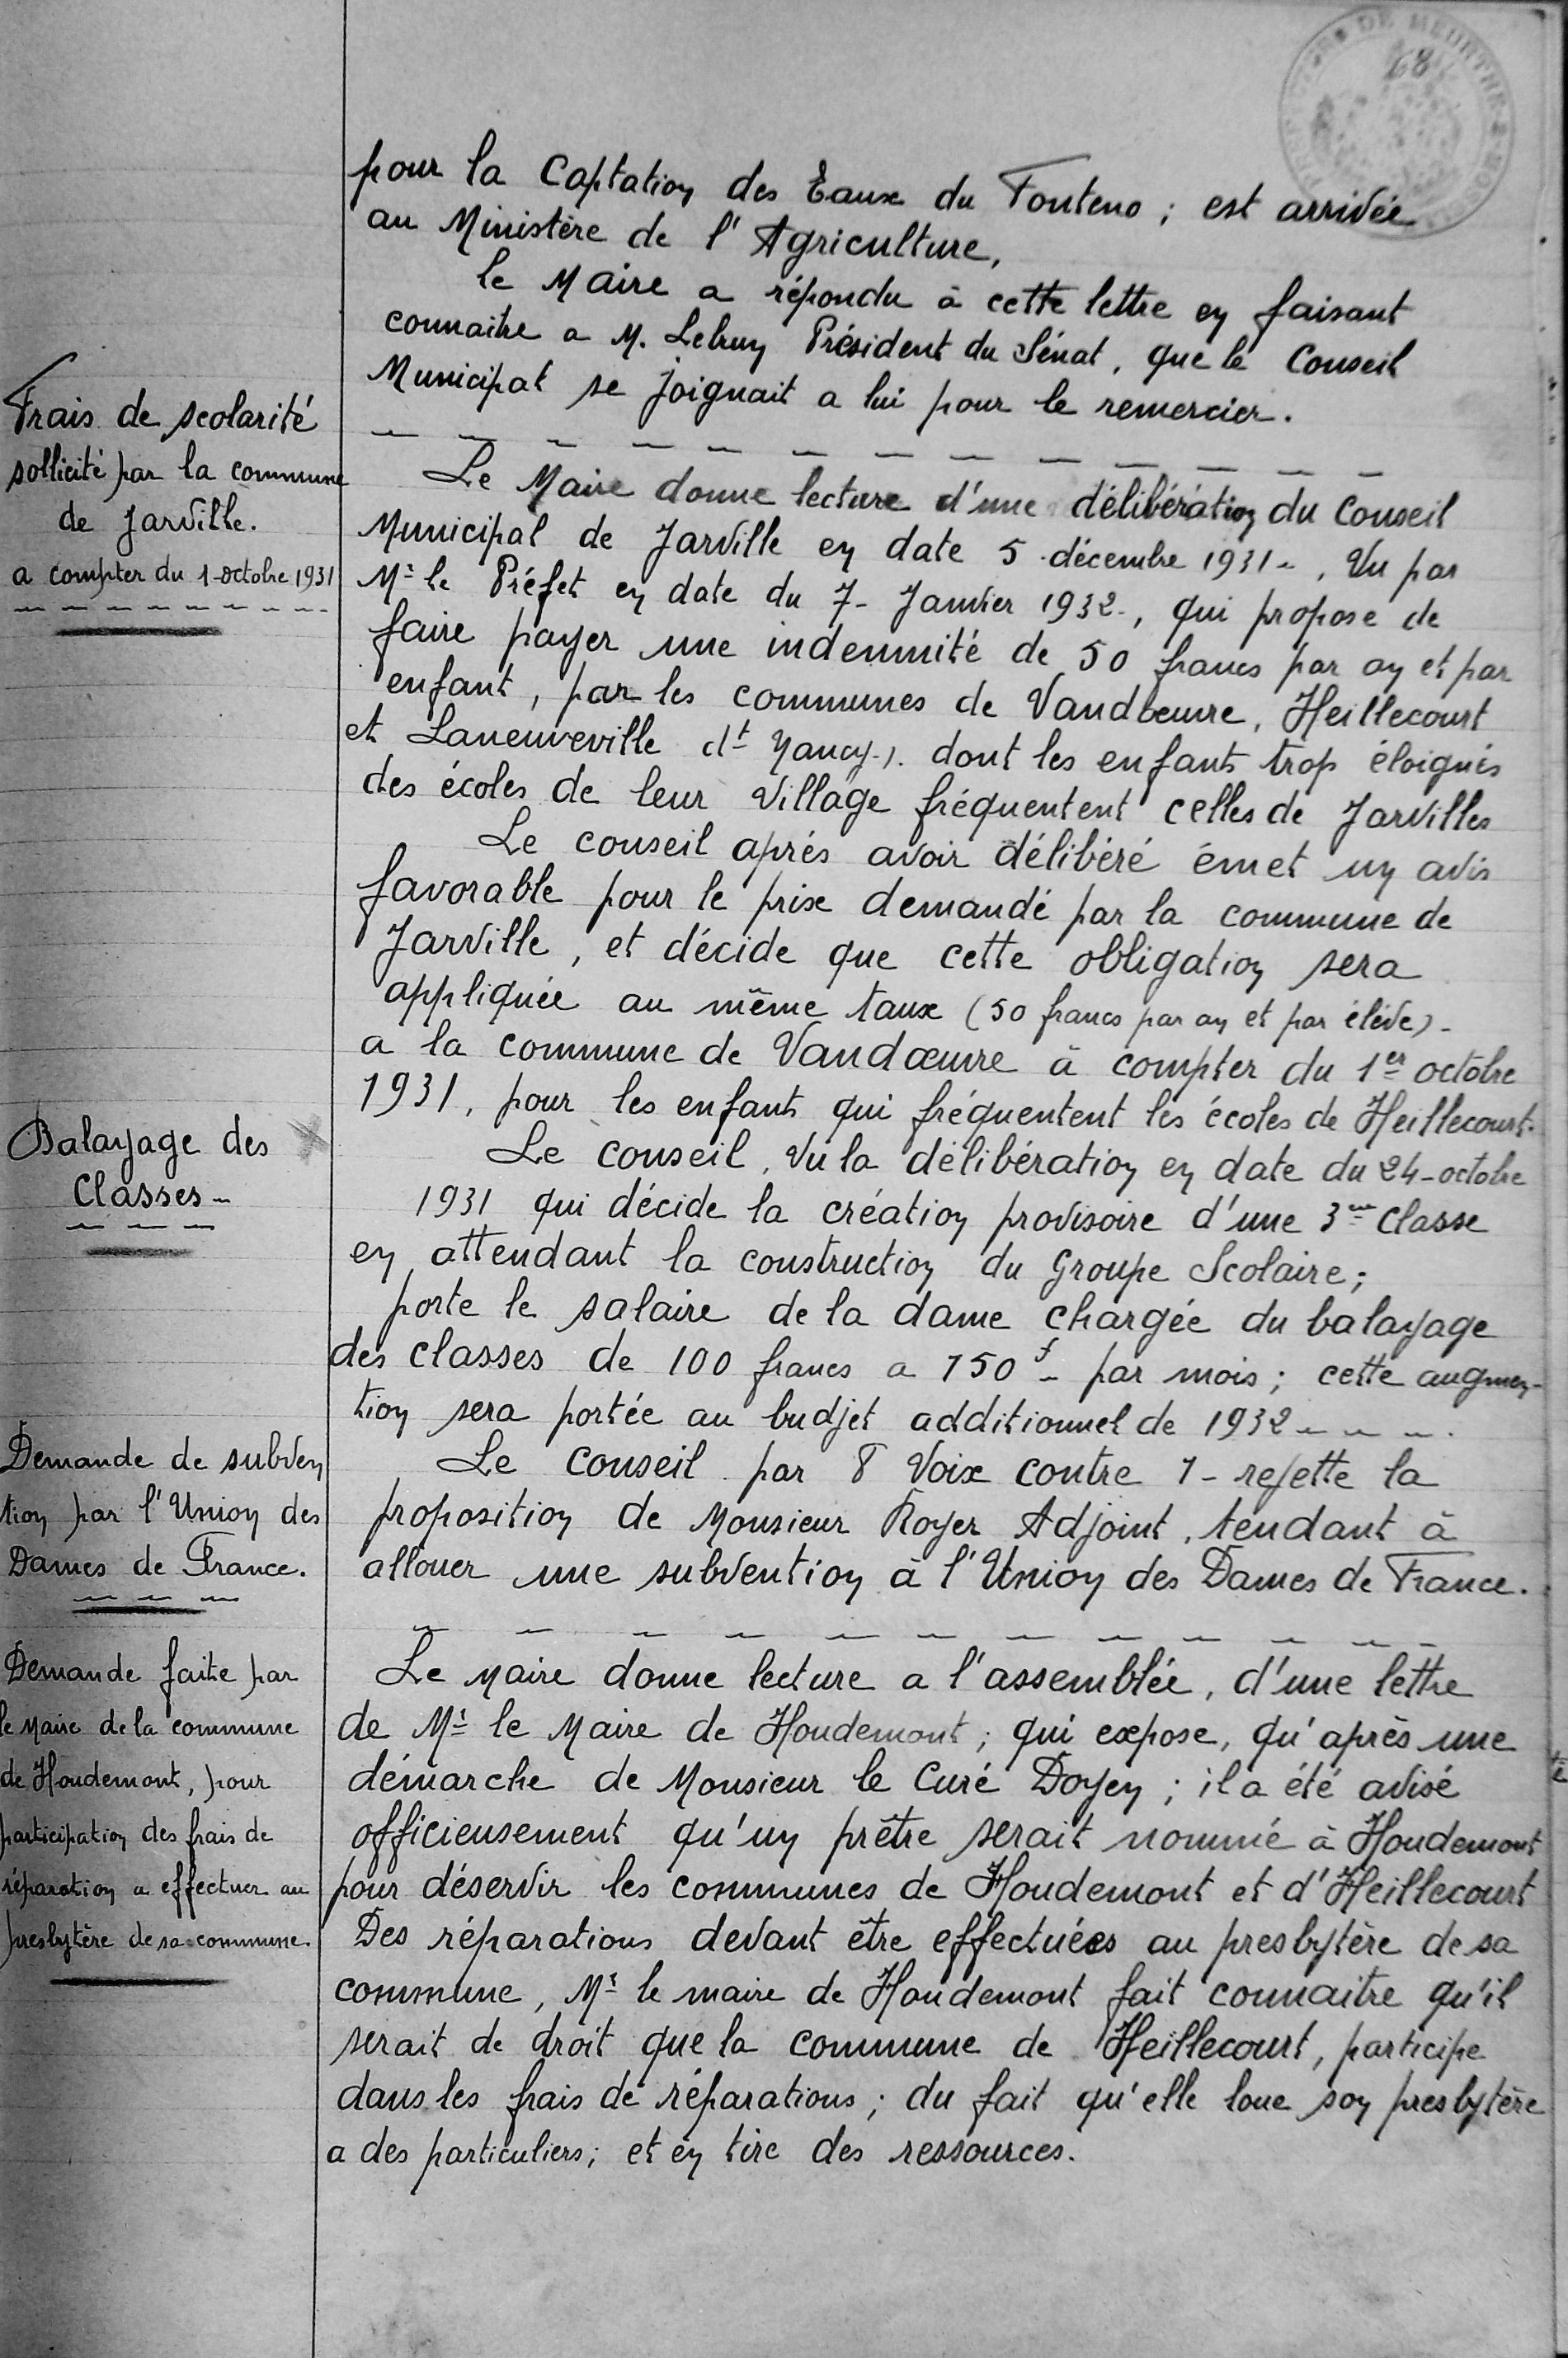 68
DE MEURTHE
pour la Captation des Eaux du Fonteno ; est arrivée
au Ministère de l'Agriculture,
le Maire a répondu à cette lettre en faisant
connaitre a M. Lebrun Président du Sénat, que le Conseil
Municipal se joignait a lui pour le remercier.
Frais de scolarité
sollicité par la commune
de Jarville.
a compter du 1 octobre 1931
Le Maire donne lecture d'une délibération du Conseil
Municipal de Jarville en date 5 décembre 1931 - , Vu par
Mr le Préfet en date du 7 - Janvier 1932 -, qui propose de
faire payer une indemnité de 50 francs par an et par
enfant, par les communes de Vandœuvre, Heillecourt
et Laneuveville dt Nancy -). dont les enfants trop éloignés
des écoles de leur village fréquentent celles de Jarvilles
Le conseil aprés avoir délibéré émet un avis
favorable pour le prix demandé par la commune de
Jarville, et décide que cette obligation sera
appliquée au même taux (50 francs par an et par élève) -
a la commune de Vandœuvre à compter du 1er octobre
1931, pour les enfants qui fréquentent les écoles de Heillecourt.
Balayage des
Classes -
Le conseil, Vu la délibération en date du 24 - octobre
1931 qui décide la création provisoire d'une 3me Classe
en attendant la construction du Groupe Scolaire ;
porte le salaire de la dame chargée du balayage
des classes de 100 francs a 150 f - par mois ; cette augmen-
tion sera portée au budjet additionnel de 1932 - - - .
Demande de subven
tion par l'Union des
Dames de France.
Le conseil par 8 Voix contre 1 - rejette la
proposition de Monsieur Royer Adjoint, tendant à
allouer une subvention à l'Union des Dames de France.
Demande faite par
le Maire de la commune
de Houdemont, pour
participation des frais de
réparation a effectuer au
presbytère de sa commune.
Le Maire donne lecture a l'assemblée, d'une lettre
de Mr le Maire de Houdemont ; qui expose, qu'après une
démarche de Monsieur le Curé Doyen ; il a été avisé
officieusement qu'un prêtre serait nommé à Houdemont
pour déservir les communes de Houdemont et d'Heillecourt
Des réparations devant être effectuées au presbytère de sa
commune, Mr le maire de Houdemont fait connaitre qu'il
serait de droit que la commune de Heillecourt, participe
dans les frais de réparations ; du fait qu'elle loue son presbytère
a des particuliers ; et en tire des ressources.